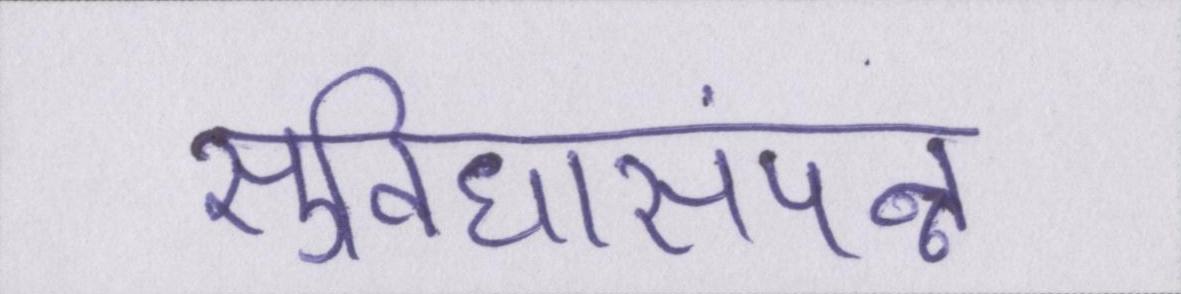 सुविधासंपन्न